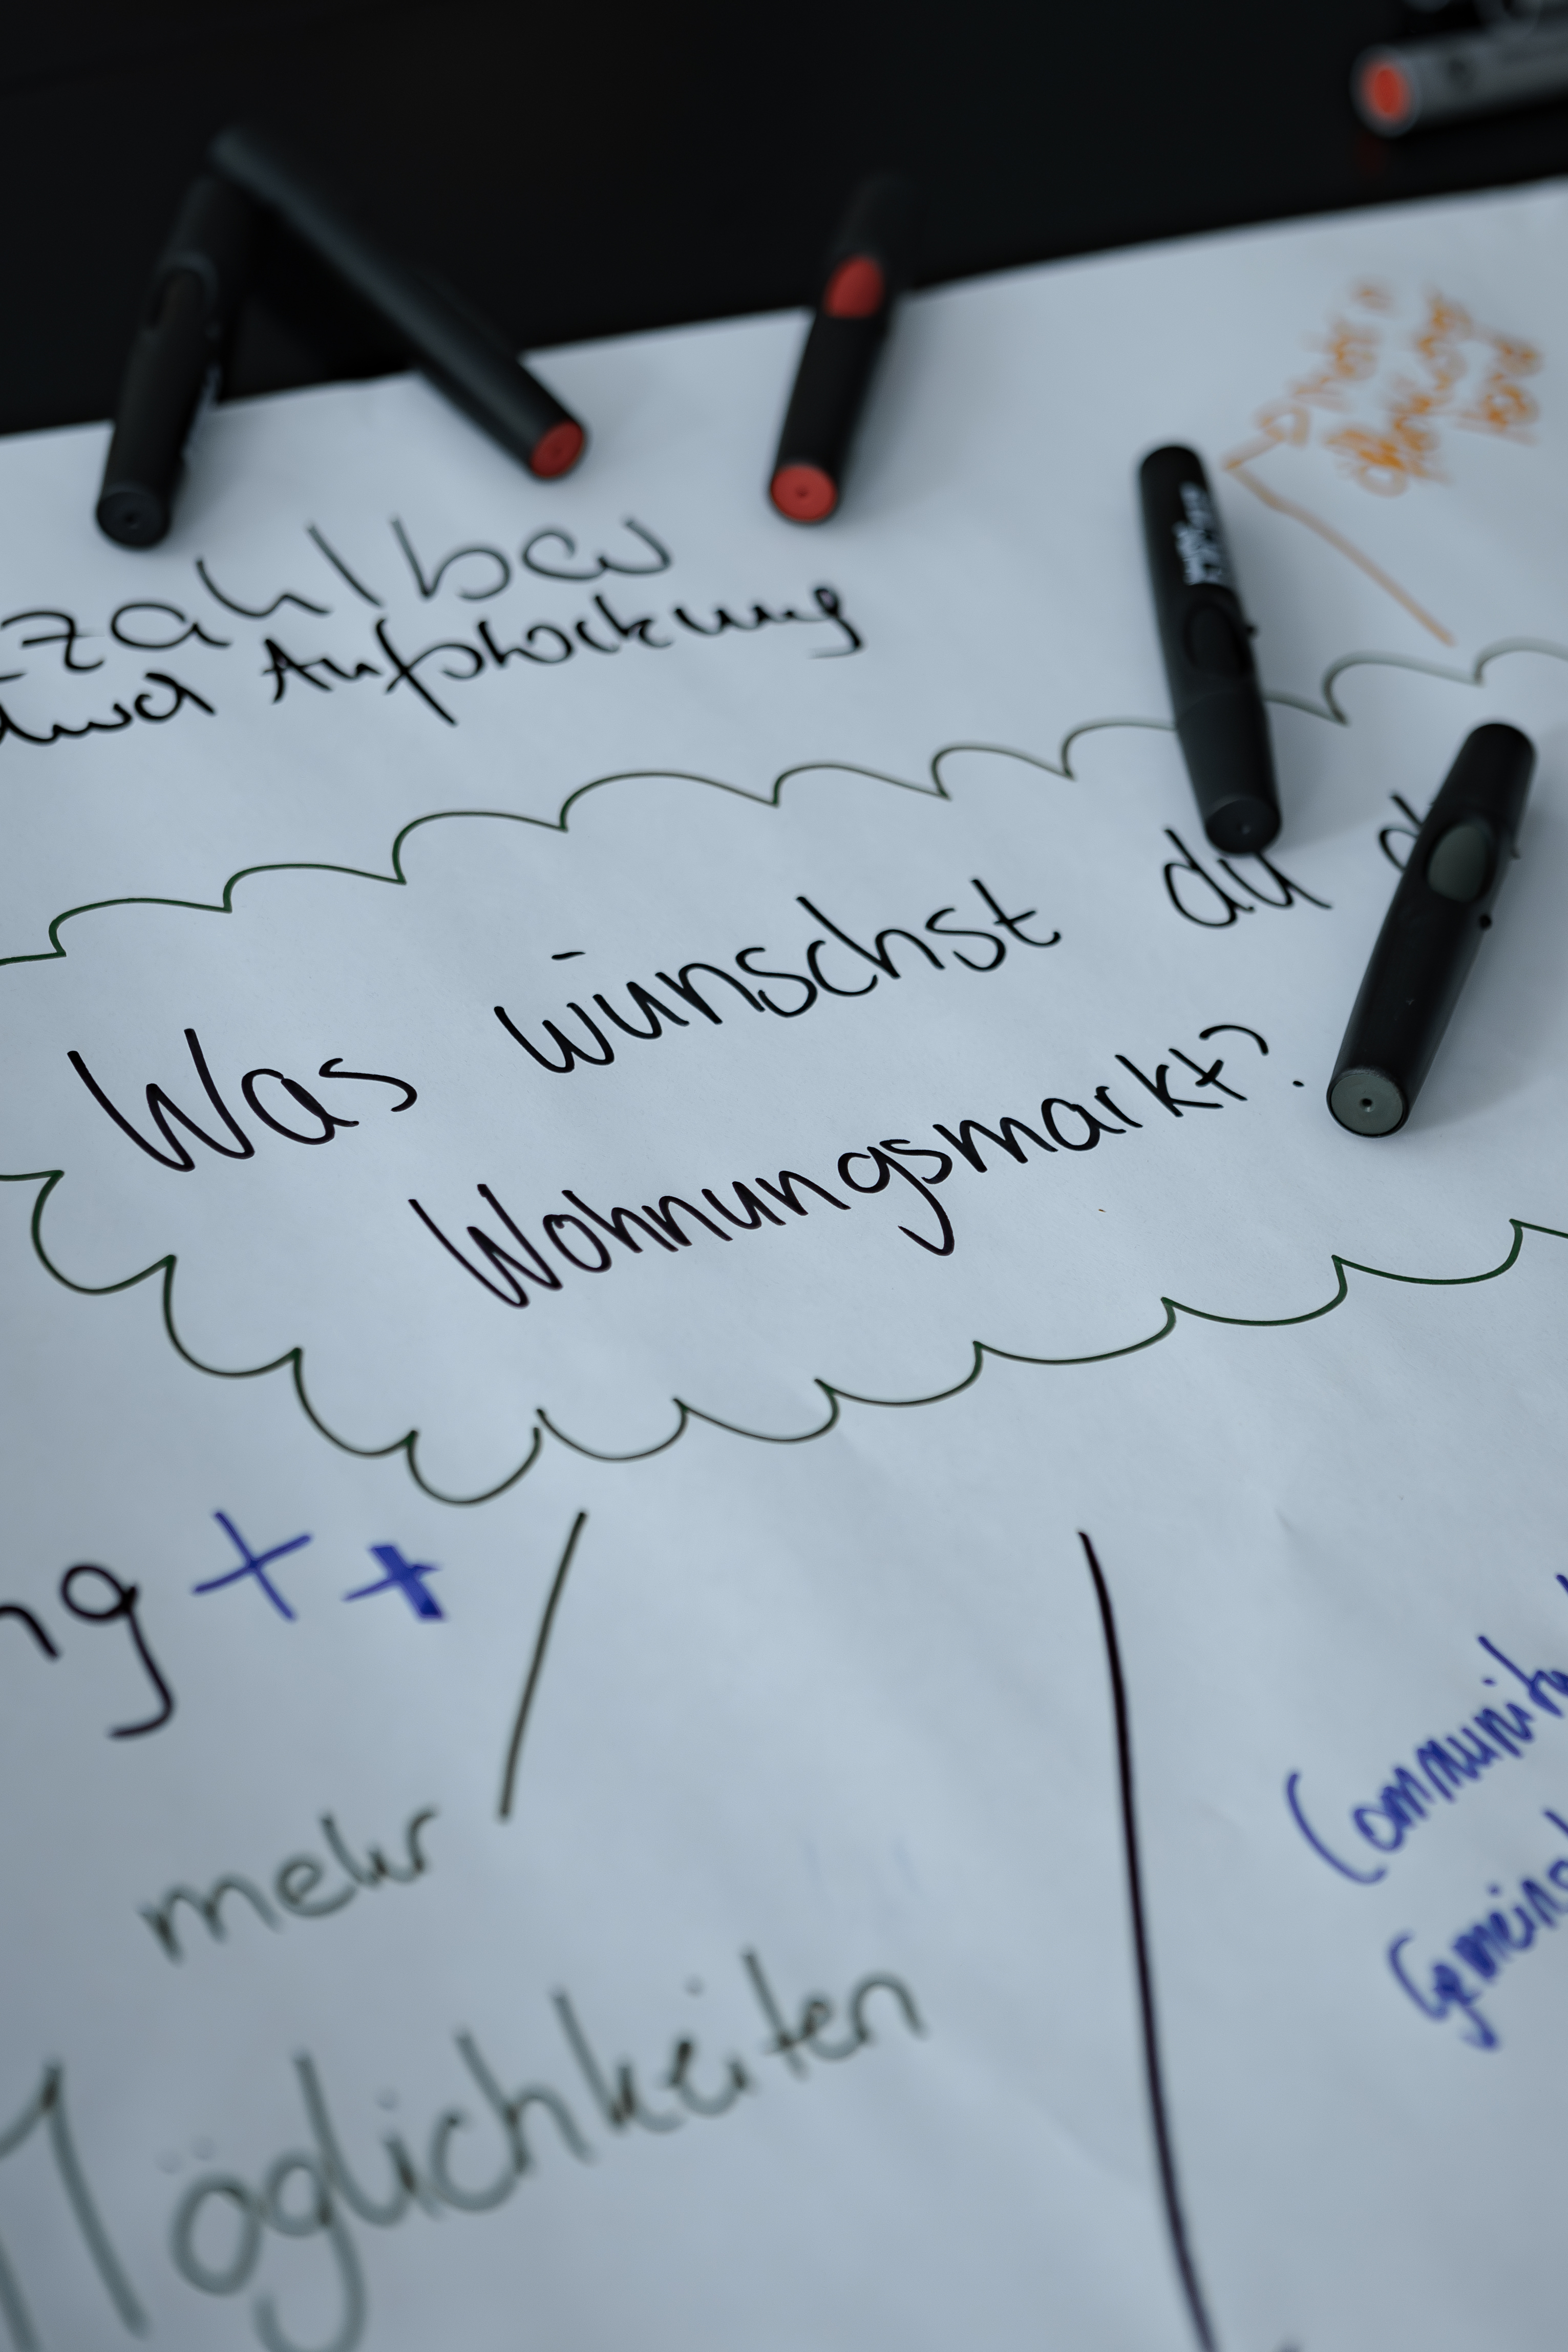 zahlbar
durch Aufstockung
Was wünschst du d
Wohnungsmarkt?
ng ++
mehr
Möglichkeiten
Community
Gemeinsch